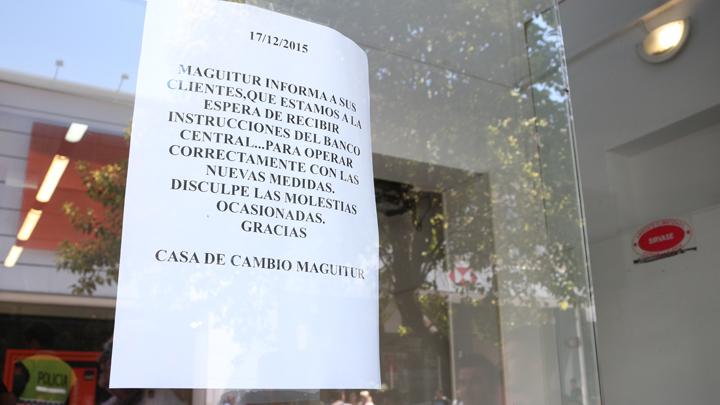 17/12/2015
MAGUITUR INFORMA A SUS
CLIENTES,QUE ESTAMOS A LA
ESPERA DE RECIBIR
INSTRUCCIONES DEL BANCO
CENTRAL...PARA OPERAR
CORRECTAMENTE CON LAS
NUEVAS MEDIDAS.
DISCULPE LAS MOLESTIAS
OCASIONADAS.
GRACIAS
CASA DE CAMBIO MAGUITUR
POLICIA
SIRVASE